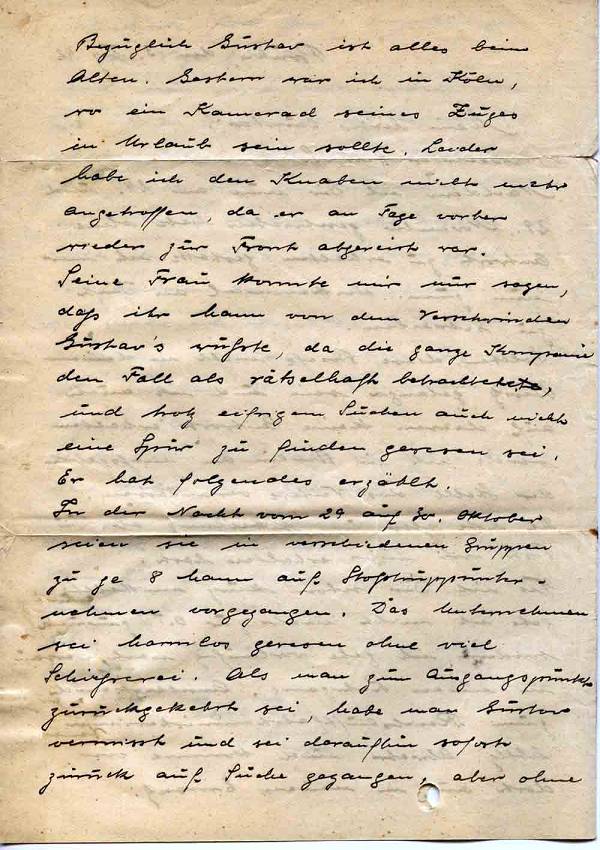 Bezüglich Gustav ist alles beim
Alten. Gestern war ich in Köln,
wo ein Kamerad seines Zuges
in Urlaub sein sollte. Leider
habe ich den Knaben nicht mehr
angetroffen, da er am Tage vorher
wieder zur Front abgereist war.
Seine Frau konnte mir nur sagen,
daß ihr Mann von dem Verschwinden
Gustav's wüßte, da die ganze Kompanie
den Fall als rätselhaft betrachtete,
und trotz eifrigem Suchen auch nicht
eine Spur zu finden gewesen sei.
Er hat folgendes erzählt.
In der Nacht vom 29 auf 30. Oktober
seien sie in verschiedenen Gruppen
zu je 8 Mann auf Stoßtruppunter-
nehmen vorgegangen. Das Unternehmen
sei harmlos gewesen ohne viel
Schießerei. Als man zum Ausgangspunkt
zurückgekehrt sei, habe man Gustav
vermisst und sei daraufhin sofort
zurück auf Suche gegangen, aber ohne